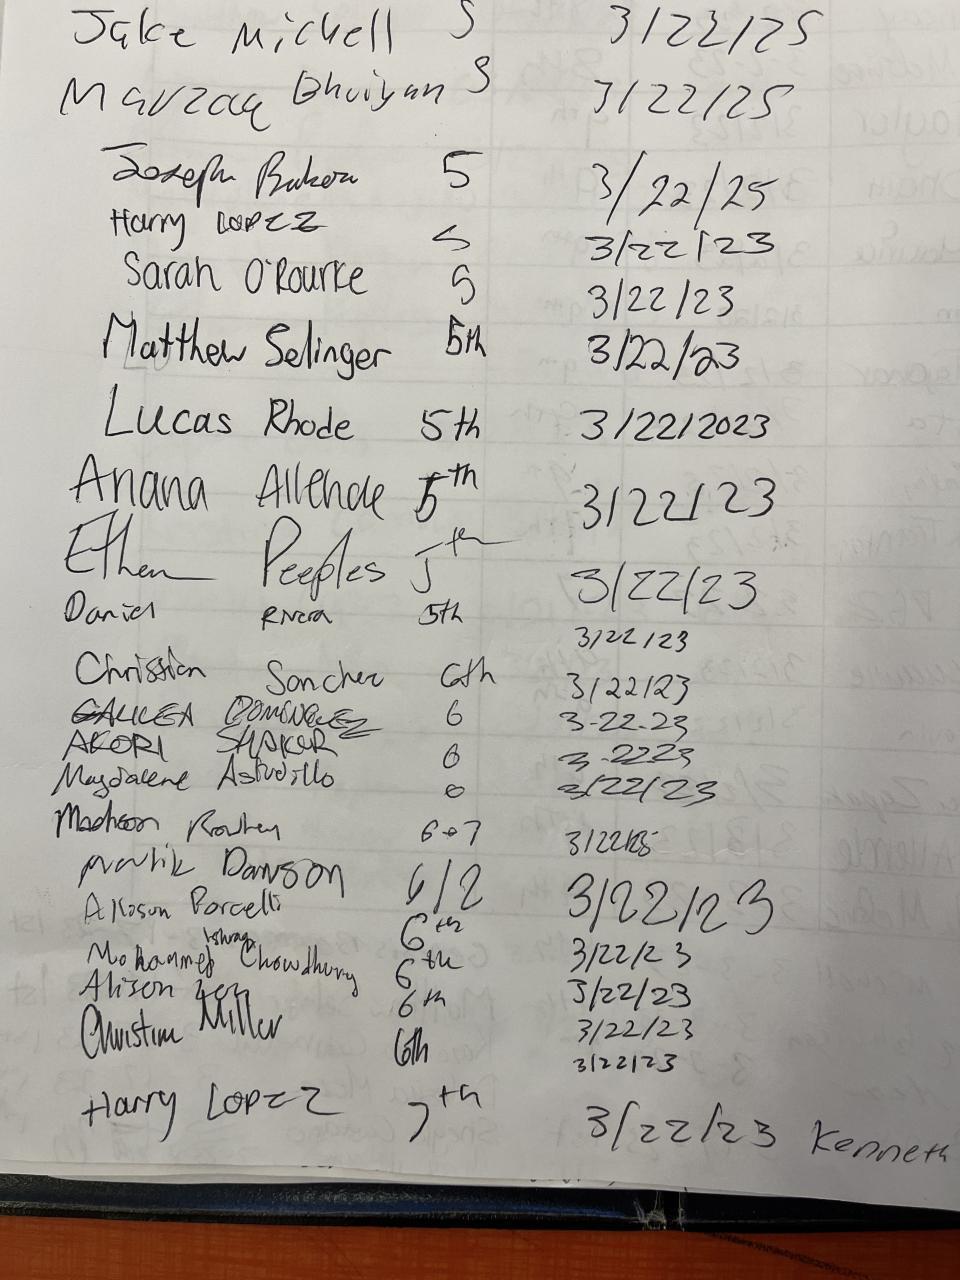 Jake Mickell 5 3/22/25
Marzaq Bhuiyan 5 3/22/25
Joseph 5 3/22/25
Harry LOPEZ 5 3/22/23
Sarah O'Rourke 5 3/22/23
Matthew Selinger 5th 3/22/23
Lucas Rhode 5th 3/22/2023
Ariana Allende 5th 3/22/23
Ethan Peeples 5th 3/22/23
Daniel Rivera 5th 3/22/23
Christian Sanchez 6th 3/22/23
GALILEA DOMINGUEZ 6 3-22-23
AKORI SHAKUR 6 3-2223
Magdalene Astudillo 6 3/22/23
Madison 6-7
Dawson 6/2 3/22/23
Allison Porcelli 6th 3/22/23
Mohammed Ishraq Chowdhury 6th 3/22/23
Alison 6th 3/22/23
Christine Miller 6th 3/22/23
Harry LOPEZ 7th 3/22/23 Kenneth